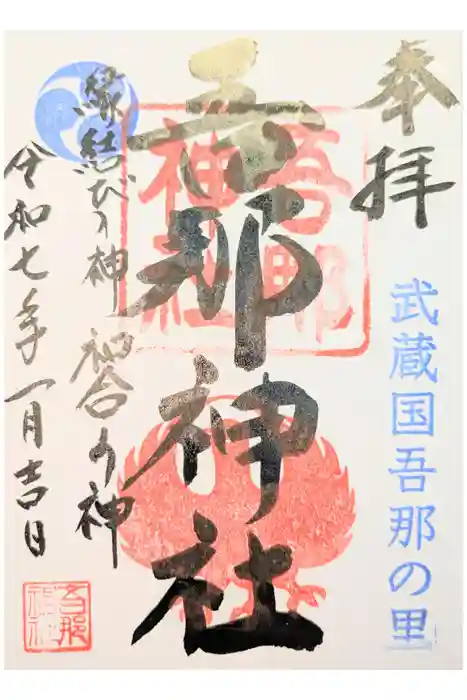 奉拝
武蔵国吾那の里
吾那神社
吾那
神社
縁結びの神 和合の神
令和七年一月吉日
吾那
神社